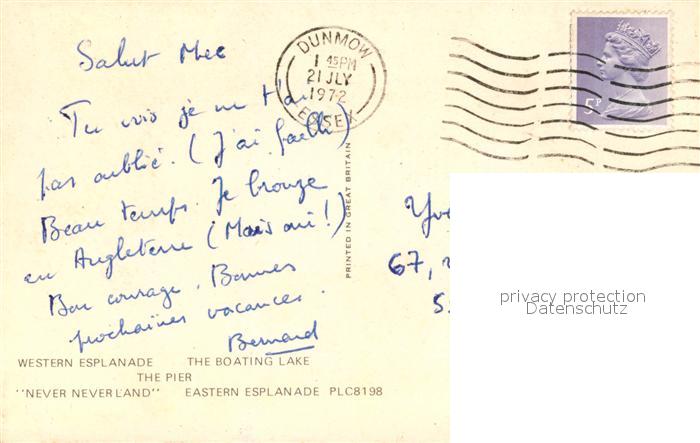 Salut Mec
DUNMOW
1 45PM
21 JLY
1972
ESSEX
5P
Tu vois je ne t'ai
pas oublié. (J'ai failli)
Beau temps. Je bronze
en Angleterre (Mais oui!)
Bon courage. Bonnes
prochaines vacances.
Bernard
PRINTED IN GREAT BRITAIN
67,
privacy protection
Datenschutz
WESTERN ESPLANADE THE BOATING LAKE
THE PIER
"NEVER NEVERLAND" EASTERN ESPLANADE PLC8198